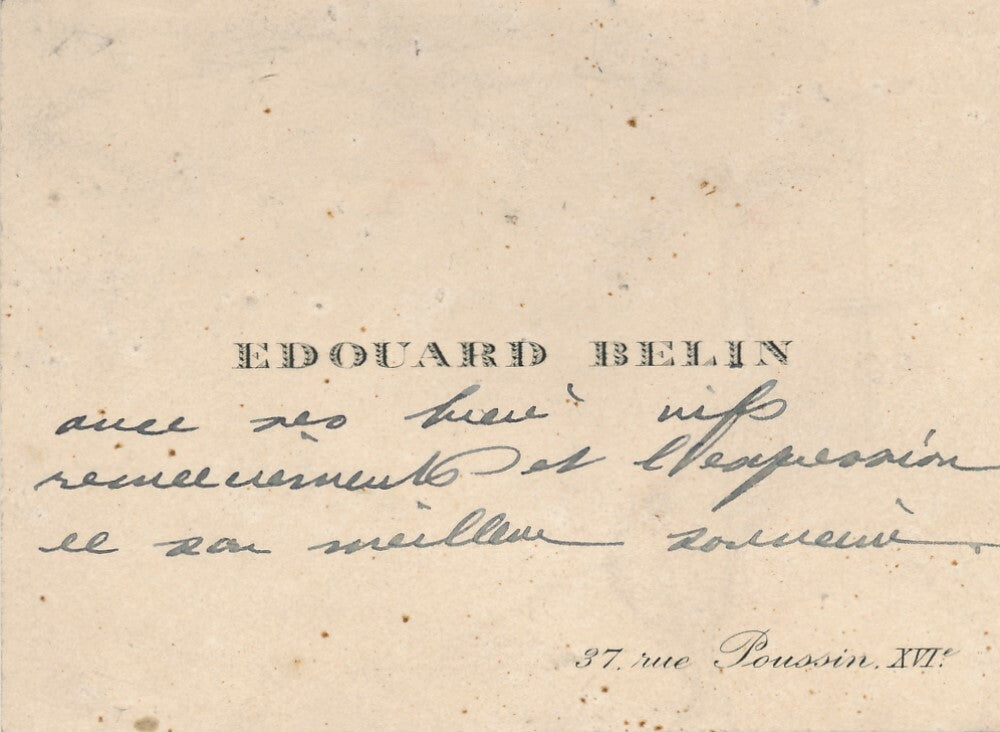 EDOUARD BELIN
avec ses bien vifs
remerciements et l'expression
de son meilleur souvenir.
37. rue Poussin. XVIe.